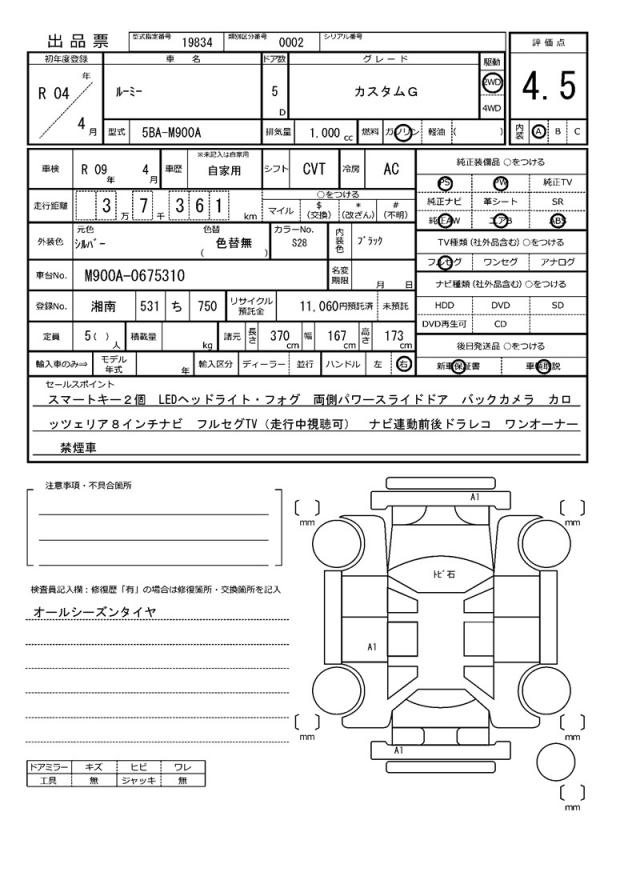 出品票 型式指定番号 19834 類別区分番号 0002 シリアル番号
評価点
4.5
内装 A B C
初年度登録 車名 ドア数 グレード 駆動
R 04 年 4 月 ルーミー 5 D カスタムG 2WD 4WD
型式 5BA-M900A 排気量 1.000 cc 燃料 ガソリン 軽油 ( )
車検 R 09 年 4 月 車歴 ※未記入は自家用 自家用 シフト CVT 冷房 AC
走行距離 3 万 7 千 3 6 1 km
○をつける
マイル $ (交換) * (改ざん) # (不明)
外装色 元色 シルバー 色替 色替無 ( ) カラーNo. S28 内装色 ブラック
車台No. M900A-0675310 名変期限 月 日
登録No. 湘南 531 ち 750 リサイクル預託金 11,060円預託済 未預託
定員 5( ) 人 積載量 kg 諸元 長さ 370 cm 幅 167 cm 高さ 173 cm
輸入車のみ⇒ モデル年式 年 輸入区分 ディーラー 並行 ハンドル 左 右
純正装備品 ○をつける
PS PW 純正TV
純正ナビ 革シート SR
純正AW エアB ABS
TV種類 (社外品含む) ○をつける
フルセグ ワンセグ アナログ
ナビ種類 (社外品含む) ○をつける
HDD DVD SD
DVD再生可 CD
後日発送品 ○をつける
新車保証書 車輌取説
セールスポイント
スマートキー2個 LEDヘッドライト・フォグ 両側パワースライドドア バックカメラ カロ
ッツェリア8インチナビ フルセグTV (走行中視聴可) ナビ連動前後ドラレコ ワンオーナー
禁煙車
注意事項・不具合箇所
検査員記入欄:修復歴「有」の場合は修復箇所・交換箇所を記入
オールシーズンタイヤ
ドアミラー キズ ヒビ ワレ
工具 無 ジャッキ 無
A1
mm mm
トビ石
A1
mm mm
A1
mm